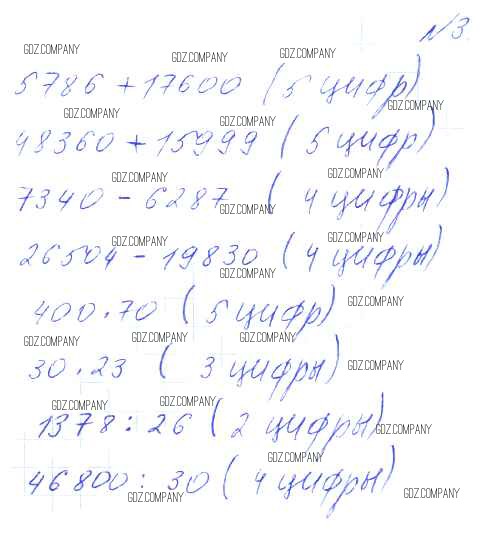 №3.
GDZ.COMPANY GDZ.COMPANY GDZ.COMPANY
5786 + 17600 (5 цифр)
GDZ.COMPANY GDZ.COMPANY GDZ.COMPANY
48360 + 15999 (5 цифр)
GDZ.COMPANY GDZ.COMPANY
7340 - 6287 (4 цифры)
GDZ.COMPANY GDZ.COMPANY GDZ.COMPANY
26504 - 19830 (4 цифры)
GDZ.COMPANY GDZ.COMPANY
400 · 70 (5 цифр)
GDZ.COMPANY GDZ.COMPANY GDZ.COMPANY
30 · 23 (3 цифры)
GDZ.COMPANY GDZ.COMPANY GDZ.COMPANY
1378 : 26 (2 цифры)
GDZ.COMPANY GDZ.COMPANY
46800 : 30 (4 цифры)
GDZ.COMPANY GDZ.COMPANY